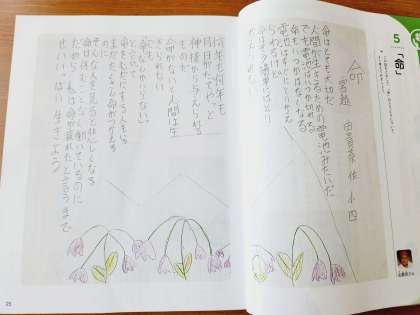 5
「命」
命
宮越 由貴奈 佐小四
命はとても大切だ
人間が生きるための電池みたいだ
でも電池はいつか切れる
命もいつかはなくなる
電池はすぐにとりかえ
られるけど
命はそう簡単にはとり
かえられない
何年も何年も
月日がたってやっと
神様から与えられる
ものだ
命がないと人間は生
きられない
でも
「命なんかいらない。」
と言って
命をむだにする人もいる
まだたくさん命がつかえる
のに
そんな人を見ると悲しくなる
命は休むことなく働いているのに
だから私は命が疲れたと言うまで
せいいっぱい生きよう
25